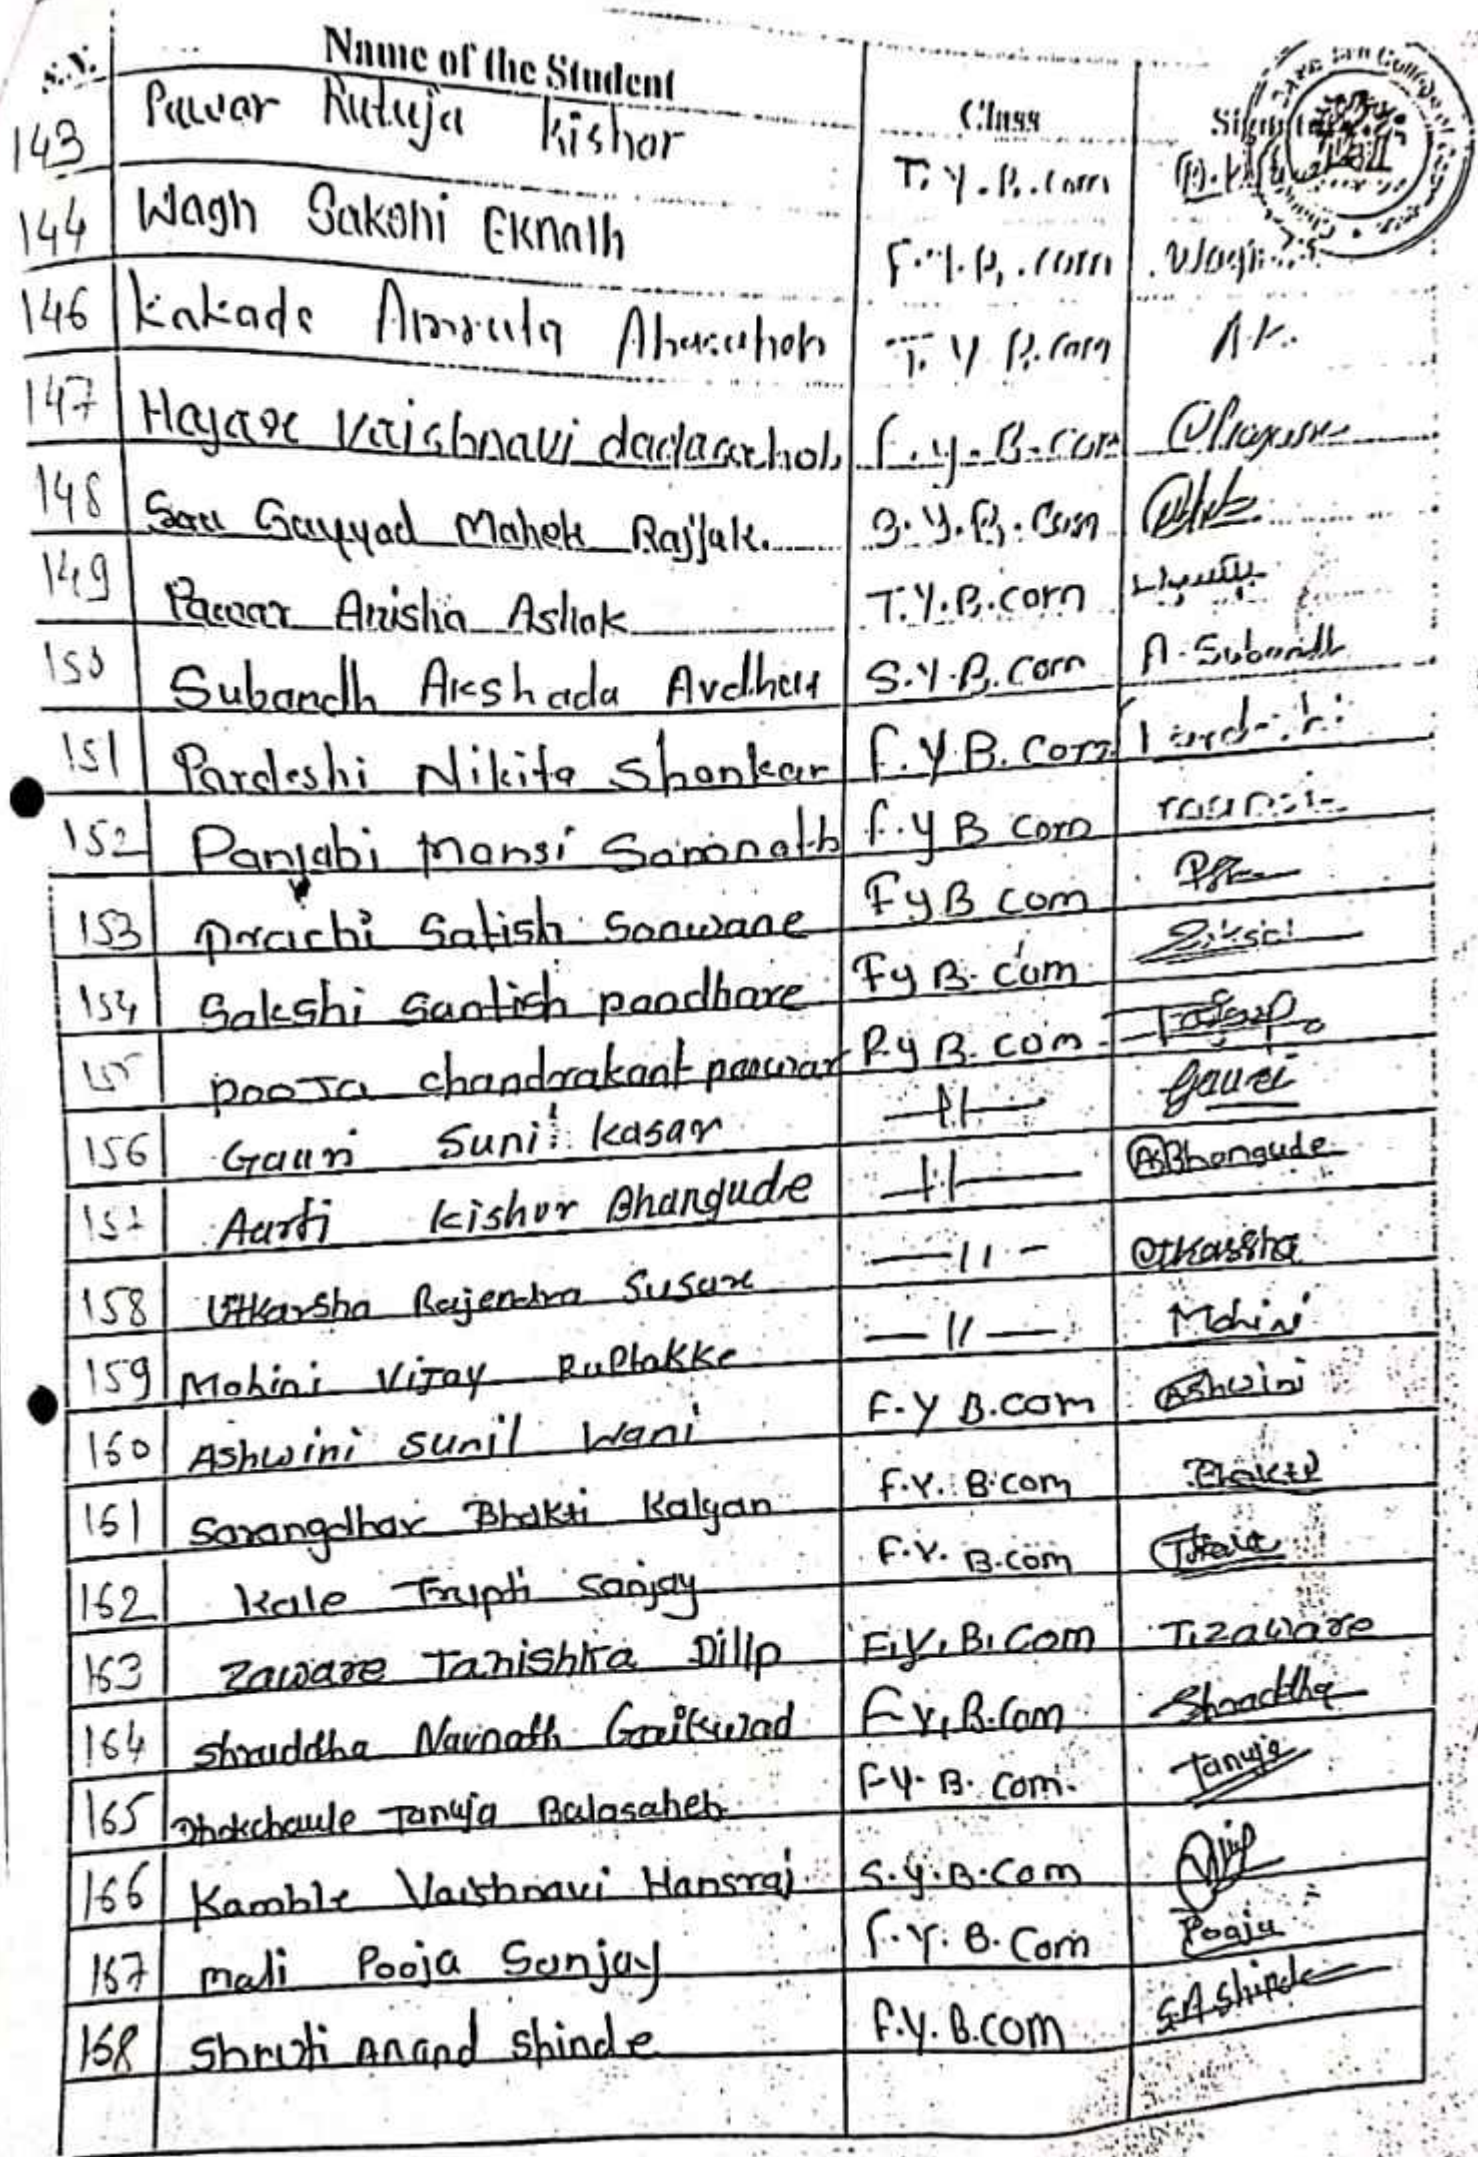 S.N. Name of the Student Class
143 Pawar Rutuja Kishor T.Y.B.com
144 Wagh Sakshi Eknath F.Y.B.com Wagh
146 Kakade Amruta T.Y B.com A.K.
147 Hagare Vaishnavi dadasaheb F.y.B.com
148 Sayyad Mahek Rajjak. S.Y.B.Com
149 Pawar Anisha Ashok T.Y.B.com
150 Subandh Akshada Avdhut S.Y.B.com A. Subandh
151 Pardeshi Nikita Shankar F.Y.B.com
152 Panjabi Mansi Somnath F.y B com
153 Prachi Satish Sonwane FyB com
154 Sakshi Santish pandhare Fy B. com
155 Pooja chandrakant pawar F.y B. com
156 Gauri Sunil Kasar —11— Gauri
157 Aarti Kishor Bhangude —11— ASBhangude
158 Utkarsha Rajendra Susare —11— Utkarsha
159 Mohini Vijay Ruptakke —11— Mohini
160 Ashwini sunil Wani F.Y B.com Ashwini
161 Sarangdhar Bhakti Kalyan F.Y. B.com Bhakti
162 Kale Trupti Sanjay F.Y. B.com
163 Zaware Tanishka Dilip F.Y.B.Com T.Zaware
164 Shraddha Navnath Gaikwad F.Y.B.Com Shraddha
165 Dhokchaule Tanuja Balasaheb F.Y.B. Com. Tanuja
166 Kamble Vaishnavi Hansraj S.Y.B.Com
167 Mali Pooja Sanjay F.Y.B.Com Pooja
168 Shruti Anand Shinde F.Y.B.com S.A Shinde